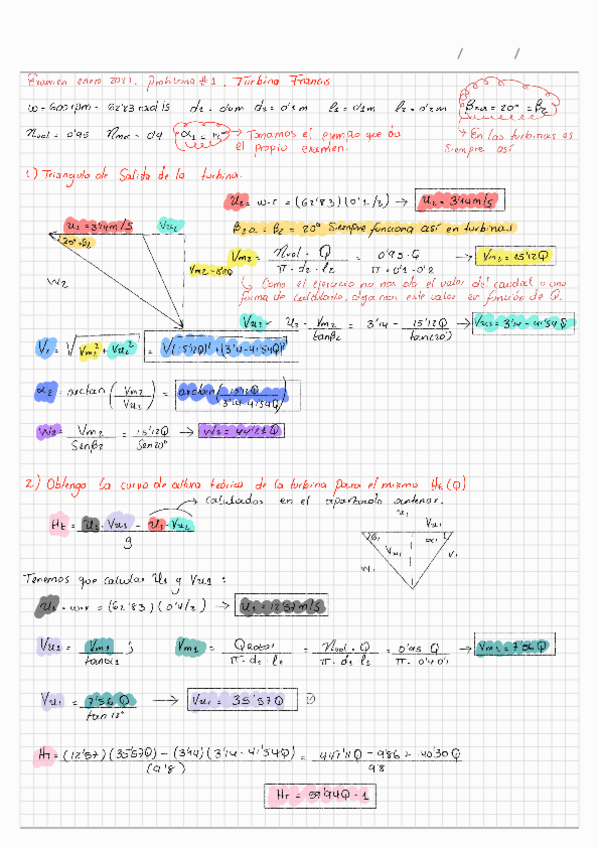 Examen enero 2021, Problema #1, Turbina Francis
ω = 600rpm = 62'83 rad/s d1 = 0'4m d2 = 0'1m l1 = 0'1m l2 = 0'2m β2a = 20° = β2
ηvol = 0'95 ηman = 0'9 α1 = 12° → Tomamos el ejemplo que da el propio examen.
→ En las turbinas es siempre así
1) Triangulo de Salida de la turbina.
U2 = w·r = (62'83)(0'1/2) → U2 = 3'14m/s
U2 = 3'14m/s Vu2
β2a = β2 = 20° Siempre funciona así en turbinas
20° = β2
W2
Vm2 = ηvol · Q / π · d2 · l2 = 0'95 · Q / π · 0'1 · 0'2 → Vm2 = 15'12Q
↳ Como el ejercicio no nos da el valor del caudal o una
forma de calcularlo, dejamos este valor en función de Q.
Vu2 = U2 - Vm2 / tanβ2 = 3'14 - 15'12Q / tan(20) → Vu2 = 3'14 - 41'54Q
V2 = √(Vm2² + Vu2²) = √((15'12Q)² + (3'14 - 41'54Q)²)
α2 = arctan (Vm2 / Vu2) = arctan (15'12Q / 3'14 - 41'54Q)
W2 = Vm2 / Senβ2 = 15'12Q / Sen20° → W2 = 44'21Q
2) Obtenga la curva de altura teórica de la turbina para el mismo Ht(Q)
→ Calculados en el apartado anterior.
Ht = U1 · Vu1 - U2 · Vu2 / g
U1
Vu1
β1 α1
Vm1
W1 V1
Tenemos que calcular U1 y Vu1 :
U1 = w·r = (62'83)(0'4/2) → U1 = 12'57m/s
Vu1 = Vm1 / tanα1 ; Vm1 = Qrotor / π · d1 · l1 = ηvol · Q / π · d1 · l1 = 0'95 Q / π · 0'4 · 0'1 → Vm1 = 7'56 Q
Vu1 = 7'56 Q / tan 12° → Vu1 = 35'57Q
Ht = (12'57)(35'57Q) - (3'14)(3'14 - 41'54Q) / (9'8) = 447'11Q - 9'86 + 130'30Q / 9'8
Ht = 59'94Q - 1